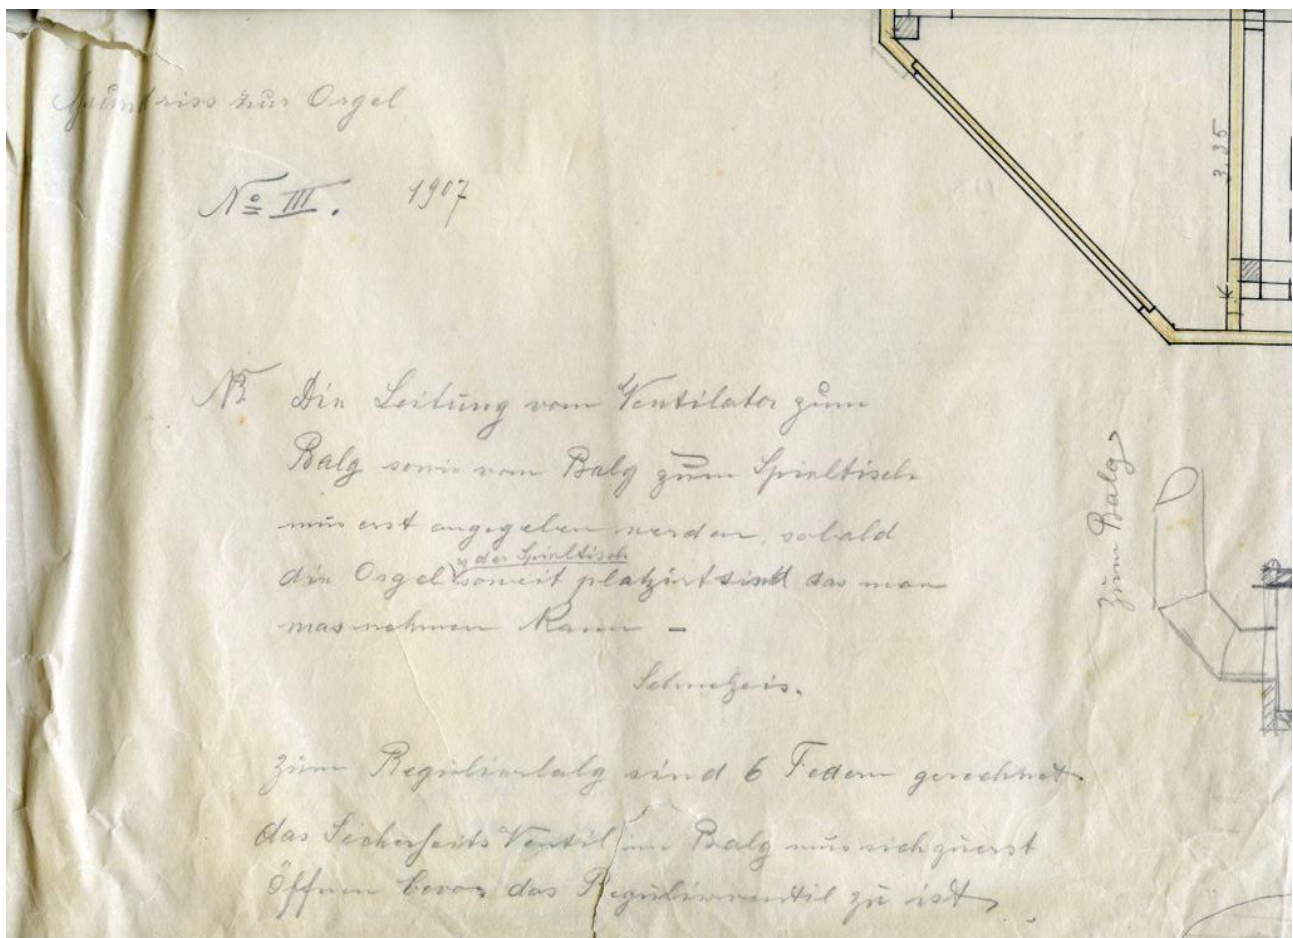 Grundriss zur Orgel
No III. 1907
3.35
NB Die Leitung vom Ventilator zum
Balg sowie vom Balg zum Spieltisch
mus erst angegeben werden, sobald
u der Spieltisch
die Orgel soweit platzirt sind das man
mas nehmen kann -
zum Balg
zum Regulierbalg sind 6 Federn gerechnet
das Sicherheits Ventil im Balg mus sich zuerst
Öffnen bevor das Regulierventil zu ist